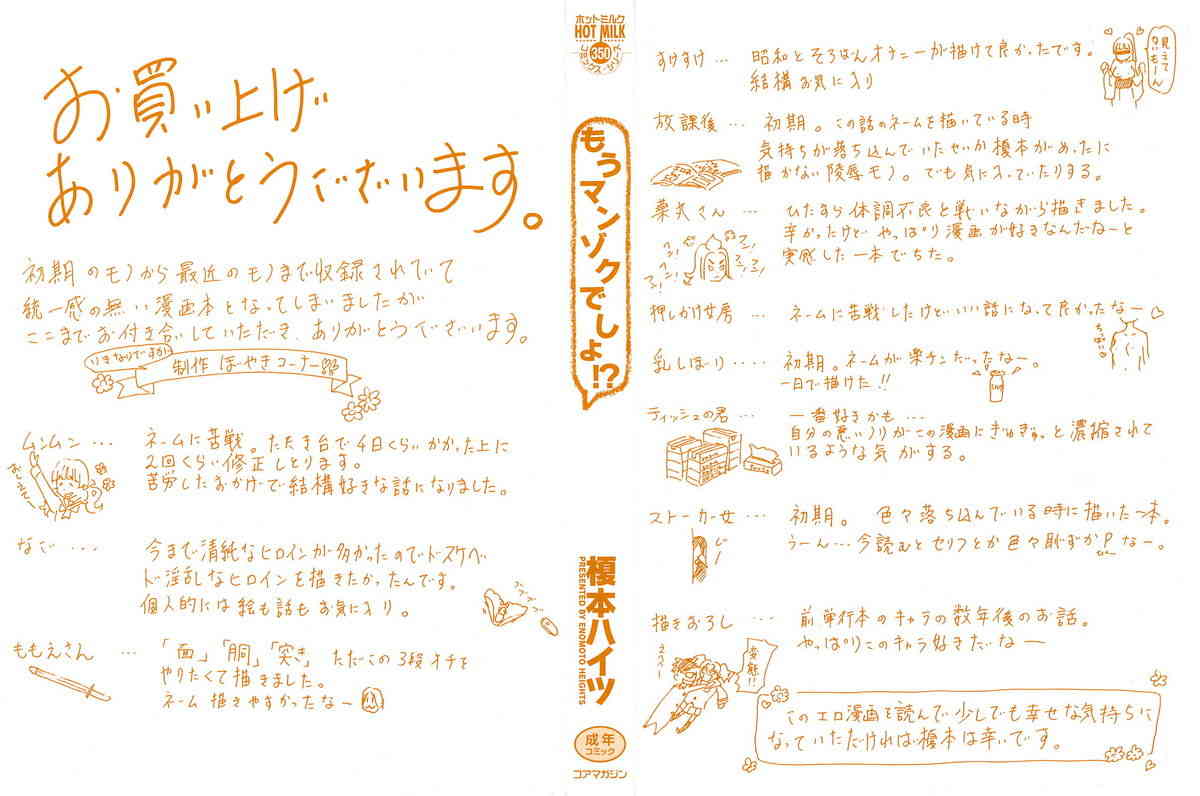 お買い上げ
ありがとうございます。
初期のモノから最近のモノまで収録されていて
統一感の無い漫画本となってしまいましたが
ここまでお付き合いしていただき、ありがとうございます。
いきなりですが
制作 ぼやきコーナー
ムンムン…
ネームに苦戦。たたき台で4日くらいかかった上に
2回くらい修正しとります。
苦労したおかげで結構好きな話になりました。
なぐ…
今まで清純なヒロインが多かったのでドスケベ
ド淫乱なヒロインを描きたかったんです。
個人的には絵も話もお気に入り。
ももえさん …
「面」「胴」「突き」ただこの3段オチを
やりたくて描きました。
ネーム描きやすかったなー
ホットミルク
HOT MILK
コミックスシリーズ
350
もうマンゾクでしょ!?
榎本ハイツ
PRESENTED BY ENOMOTO HEIGHTS
成年
コミック
コアマガジン
すけすけ… 昭和とそろばんオナニーが描けて良かったです。
結構お気に入り
見えてないもーん
放課後 … 初期。この話のネームを描いている時
気持ちが落ち込んでいたせいか榎本がめったに
描かない陵辱モノ。でも気に入っていたりする。
薬丸さん … ひたすら体調不良と戦いながら描きました。
辛かったけど やっぱり漫画が好きなんだなーと
実感した一本でした。
押しかけ女房 … ネームに苦戦したけどいい話になって良かったなー
ちっぱい
乳しぼり…. 初期。ネームが楽チンだったなー。
一日で描けた!!
ティッシュの君… 一番好きかも…
自分の悪いノリがこの漫画にぎゅぎゅっと濃縮されて
いるような気がする。
ストーカー女 … 初期。 色々落ち込んでいる時に描いた一本。
うーん…今読むとセリフとか色々恥ずかしいなー。
じー
描きおろし … 前単行本のキャラの数年後のお話。
やっぱりこのキャラ好きだなー
変態!!
このエロ漫画を読んで少しでも幸せな気持ちに
なっていただければ榎本は幸いです。